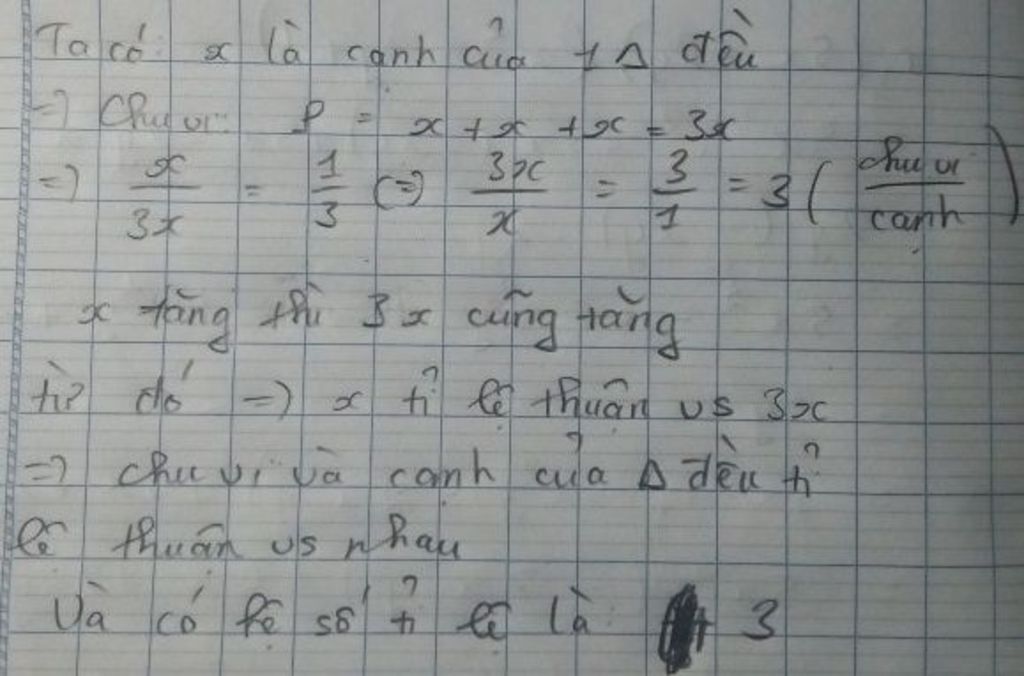 Ta có x là cạnh của 1 Δ đều
=> Chu vi: P = x + x + x = 3x
=> x/3x = 1/3 (=>) 3x/x = 3/1 = 3 (chu vi/cạnh)
x tăng thì 3x cũng tăng
từ đó => x tỉ lệ thuận vs 3x
=> chu vi và cạnh của Δ đều tỉ
lệ thuận vs nhau
Và có hệ số tỉ lệ là 3